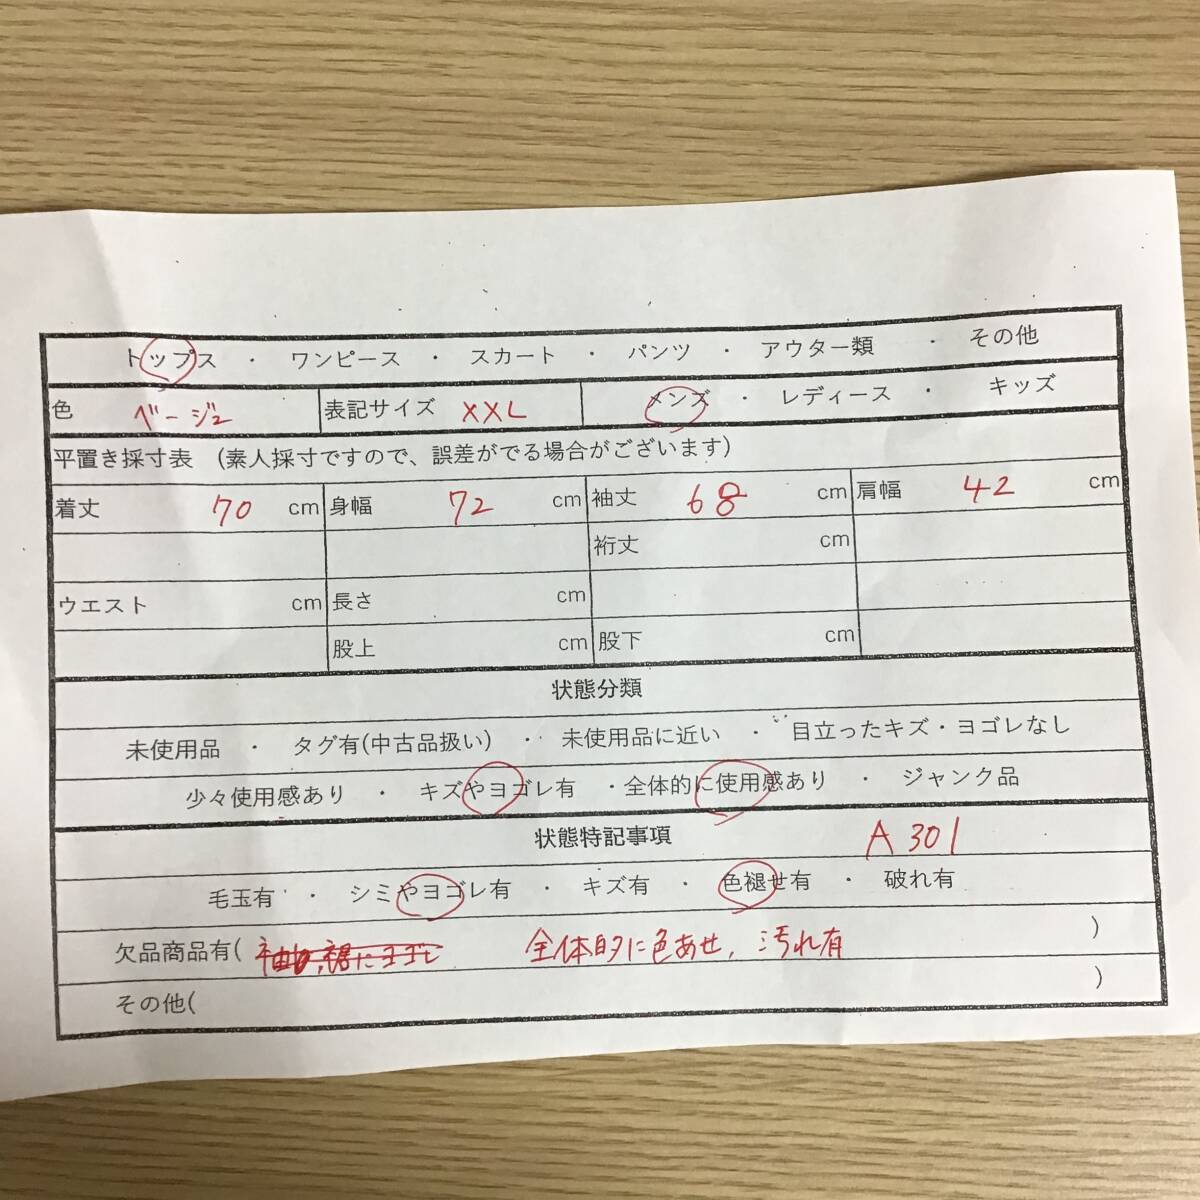 トップス ・ ワンピース ・ スカート ・ パンツ ・ アウター類 ・ その他
色 ベージュ 表記サイズ XXL メンズ ・ レディース ・ キッズ
平置き採寸表 (素人採寸ですので、誤差がでる場合がございます)
着丈 70 cm 身幅 72 cm 袖丈 68 cm 肩幅 42 cm
裄丈 cm
ウエスト cm 長さ cm
股上 cm 股下 cm
状態分類
未使用品 ・ タグ有(中古品扱い) ・ 未使用品に近い ・ 目立ったキズ・ヨゴレなし
少々使用感あり ・ キズやヨゴレ有 ・全体的に使用感あり ・ ジャンク品
状態特記事項 A301
毛玉有 ・ シミやヨゴレ有 ・ キズ有 ・ 色褪せ有 ・ 破れ有
欠品商品有( 袖、裾にヨゴレ 全体的に色あせ、汚れ有 )
その他( )